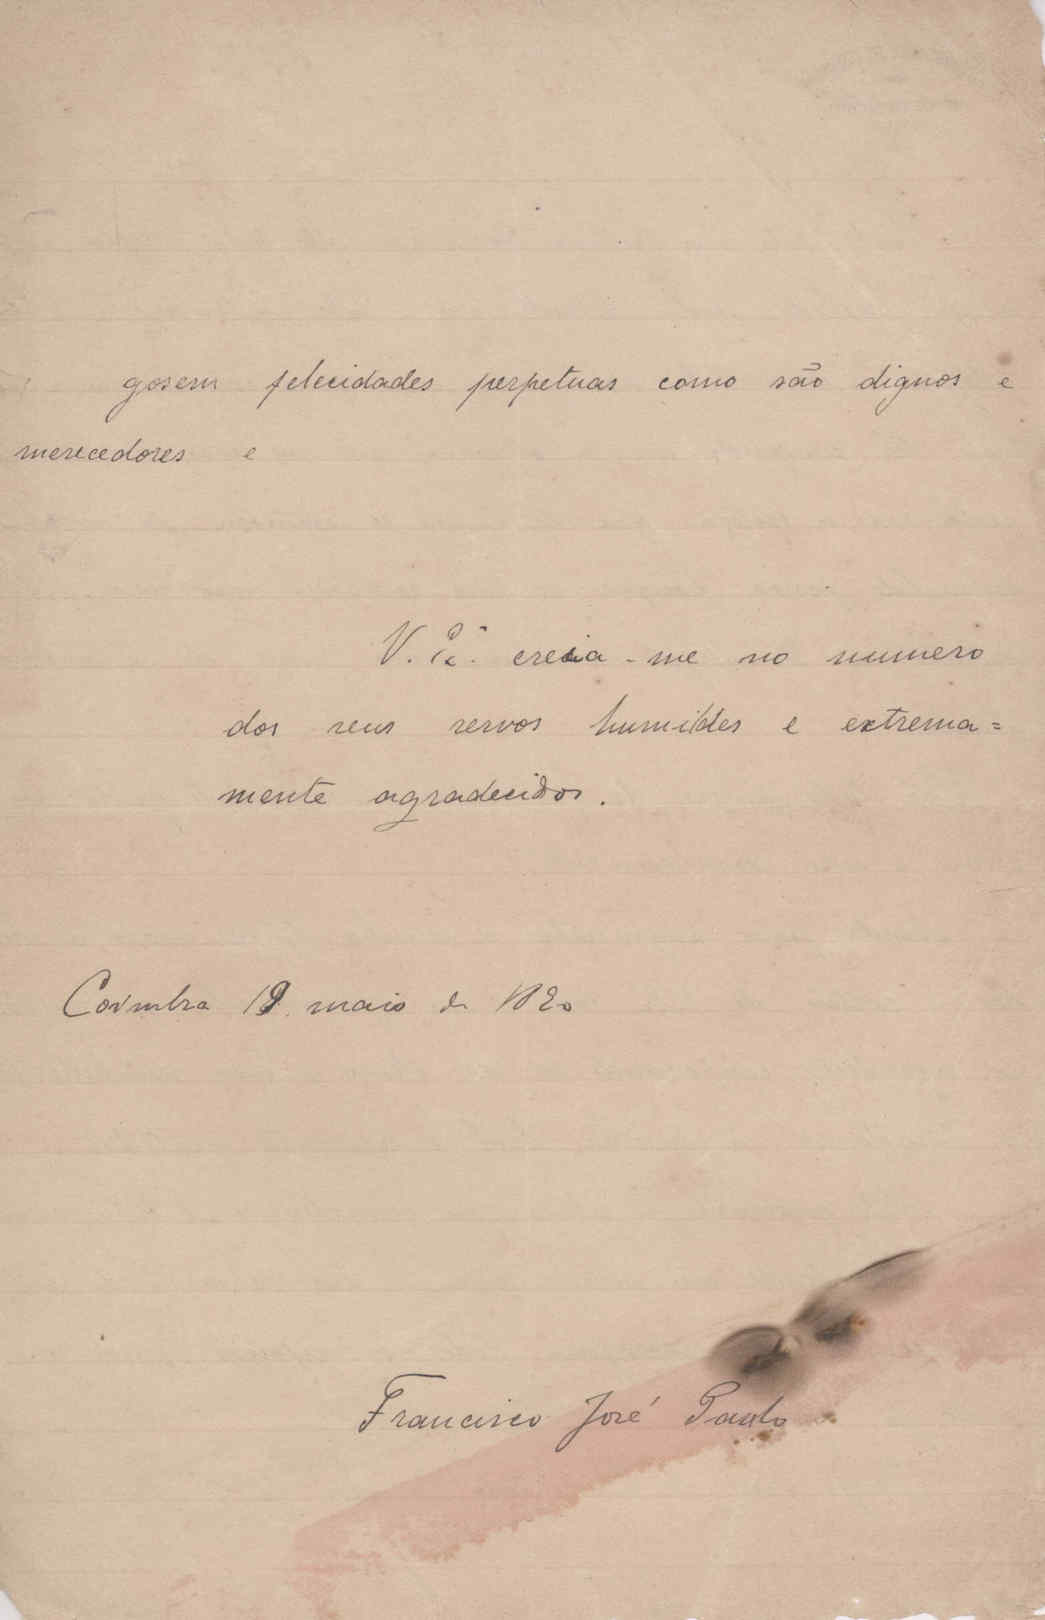 gosem felecidades perpetuas como são dignos e
merecedores e
V. Exª. creia-me no numero
dos seus servos humildes e extrema=
mente agradecidos.
Coimbra 19 maio de 1920
Francisco José Paulo